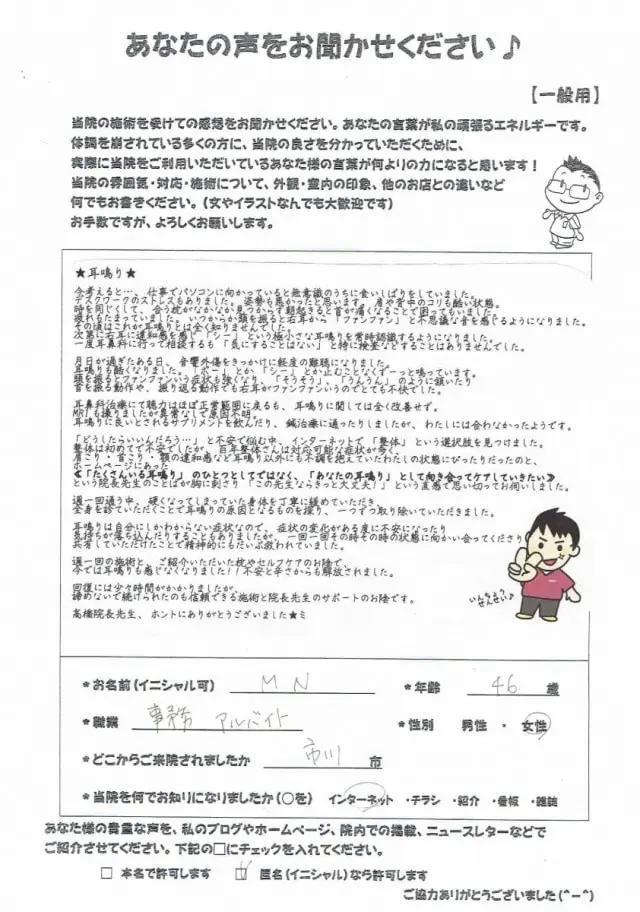 あなたの声をお聞かせください♪
【一般用】
当院の施術を受けての感想をお聞かせください。あなたの言葉が私の頑張るエネルギーです。
体調を崩されている多くの方に、当院の良さを分かっていただくために、
実際に当院をご利用いただいているあなた様の言葉が何よりの力になると思います!
当院の雰囲気・対応・施術について、外観・室内の印象、他のお店との違いなど
何でもお書きください。(文やイラストなんでも大歓迎です)
お手数ですが、よろしくお願いします。
★耳鳴り★
今考えると…、仕事でパソコンに向かっていると無意識のうちに食いしばりをしていました。
デスクワークのストレスもありました。姿勢も悪かったと思います。肩や背中のコリも酷い状態。
時を同じくして、合う枕がなかなか見つからず朝起きると首が痛くなることで困ってもいました。
疲れもたまっていました。いつからか頭を振ると右耳から「ファンファン」と不思議な音を感じるようになりました。
その頃はこれが耳鳴りとは全く知りませんでした。
次第に右耳に違和感を感じ「シー」という極小さな耳鳴りを常時認識するようになりました。
一度耳鼻科に行って相談するも「気にすることはない」と特に検査などすることはありませんでした。
月日が過ぎたある日、音響外傷をきっかけに軽度の難聴になりました。
耳鳴りも酷くなりました。「ボー」とか「シー」とか止むことなくずーっと鳴っています。
頭を振るとファンファンいう症状も強くなり、「そうそう」、「うんうん」のように頷いたり
首を振る動作や、振り返る動作でも右耳がファンファンいうのでとても不快でした。
耳鼻科治療にて聴力はほぼ正常範囲に戻るも、耳鳴りに関しては全く改善せず。
MRIも撮りましたが異常なしで原因不明。
耳鳴りに良いとされるサプリメントを飲んだり、鍼治療に通ったりしましたが、わたしには合わなかったようです。
「どうしたらいいんだろう…」と不安で悩む中、インターネットで「整体」という選択肢を見つけました。
整体は初めてで不安でしたが、百年整体さんは対応可能な症状が多く、
肩こり・首こり・顎の違和感など耳鳴り以外にも不調を抱えていたわたしの状態にぴったりだったのと、
ホームページにあった
《「たくさんいる耳鳴り」のひとつとしてではなく、「あなたの耳鳴り」として向き合ってケアしていきたい》
という院長先生のことばが胸に刺さり「この先生ならきっと大丈夫!」という直感で思い切ってお伺いしました。
週一回通う中、硬くなってしまっていた身体を丁寧に緩めていただき、
全身を診ていただくことで耳鳴りの原因となるものを探り、一つずつ取り除いていただきました。
耳鳴りは自分にしかわからない症状なので、症状の変化がある度に不安になったり
気持ちが落ち込んだりすることもありましたが、一回一回その時その時の状態に向かい合ってくださり
共有していただけたことで精神的にもだいぶ救われていました。
週一回の施術と、ご紹介いただいた枕やセルフケアのお陰で、
今では耳鳴りも感じなくなりました!!不安と辛さからも解放されました。
回復には少々時間がかかりましたが、
諦めないで続けられたのも信頼できる施術と院長先生のサポートのお陰です。
高橋院長先生、ホントにありがとうございました★ミ
いんちょう
せんせい♪
*お名前(イニシャル可) MN *年齢 46 歳
*職業 事務 アルバイト *性別 男性 ・ 女性
*どこからご来院されましたか 市川 市
*当院を何でお知りになりましたか(○を) インターネット ・チラシ ・紹介 ・看板 ・雑誌
あなた様の貴重な声を、私のブログやホームページ、院内での掲載、ニュースレターなどで
ご紹介させてください。下記の□にチェックを入れてください。
□ 本名で許可します ☑ 匿名(イニシャル)なら許可します
ご協力ありがとうございました(^-^)